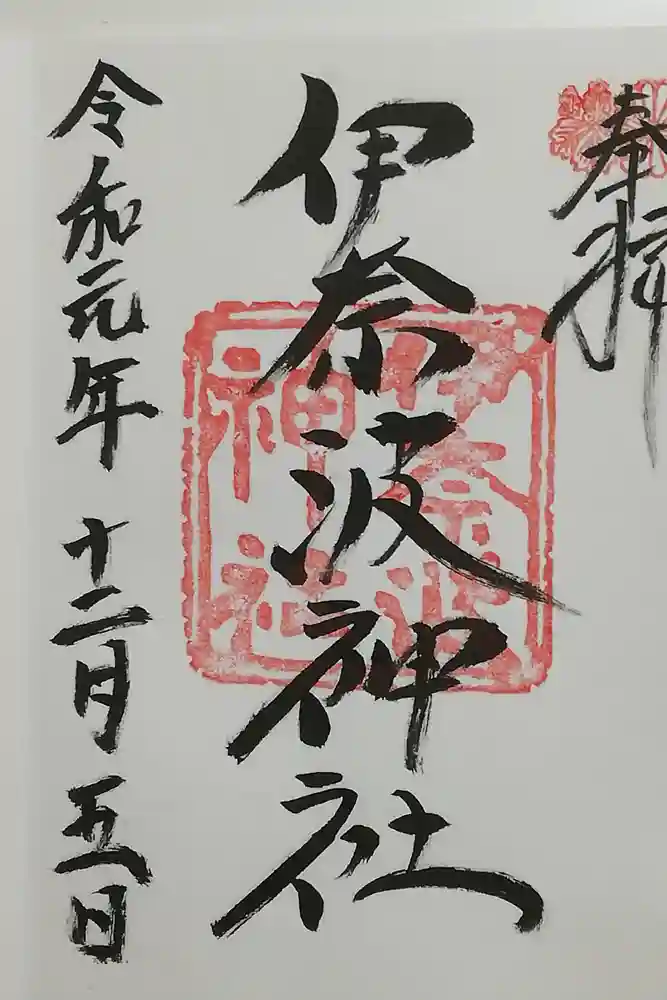 奉拝
伊奈波神社
伊奈波神社
令和元年十二月五日